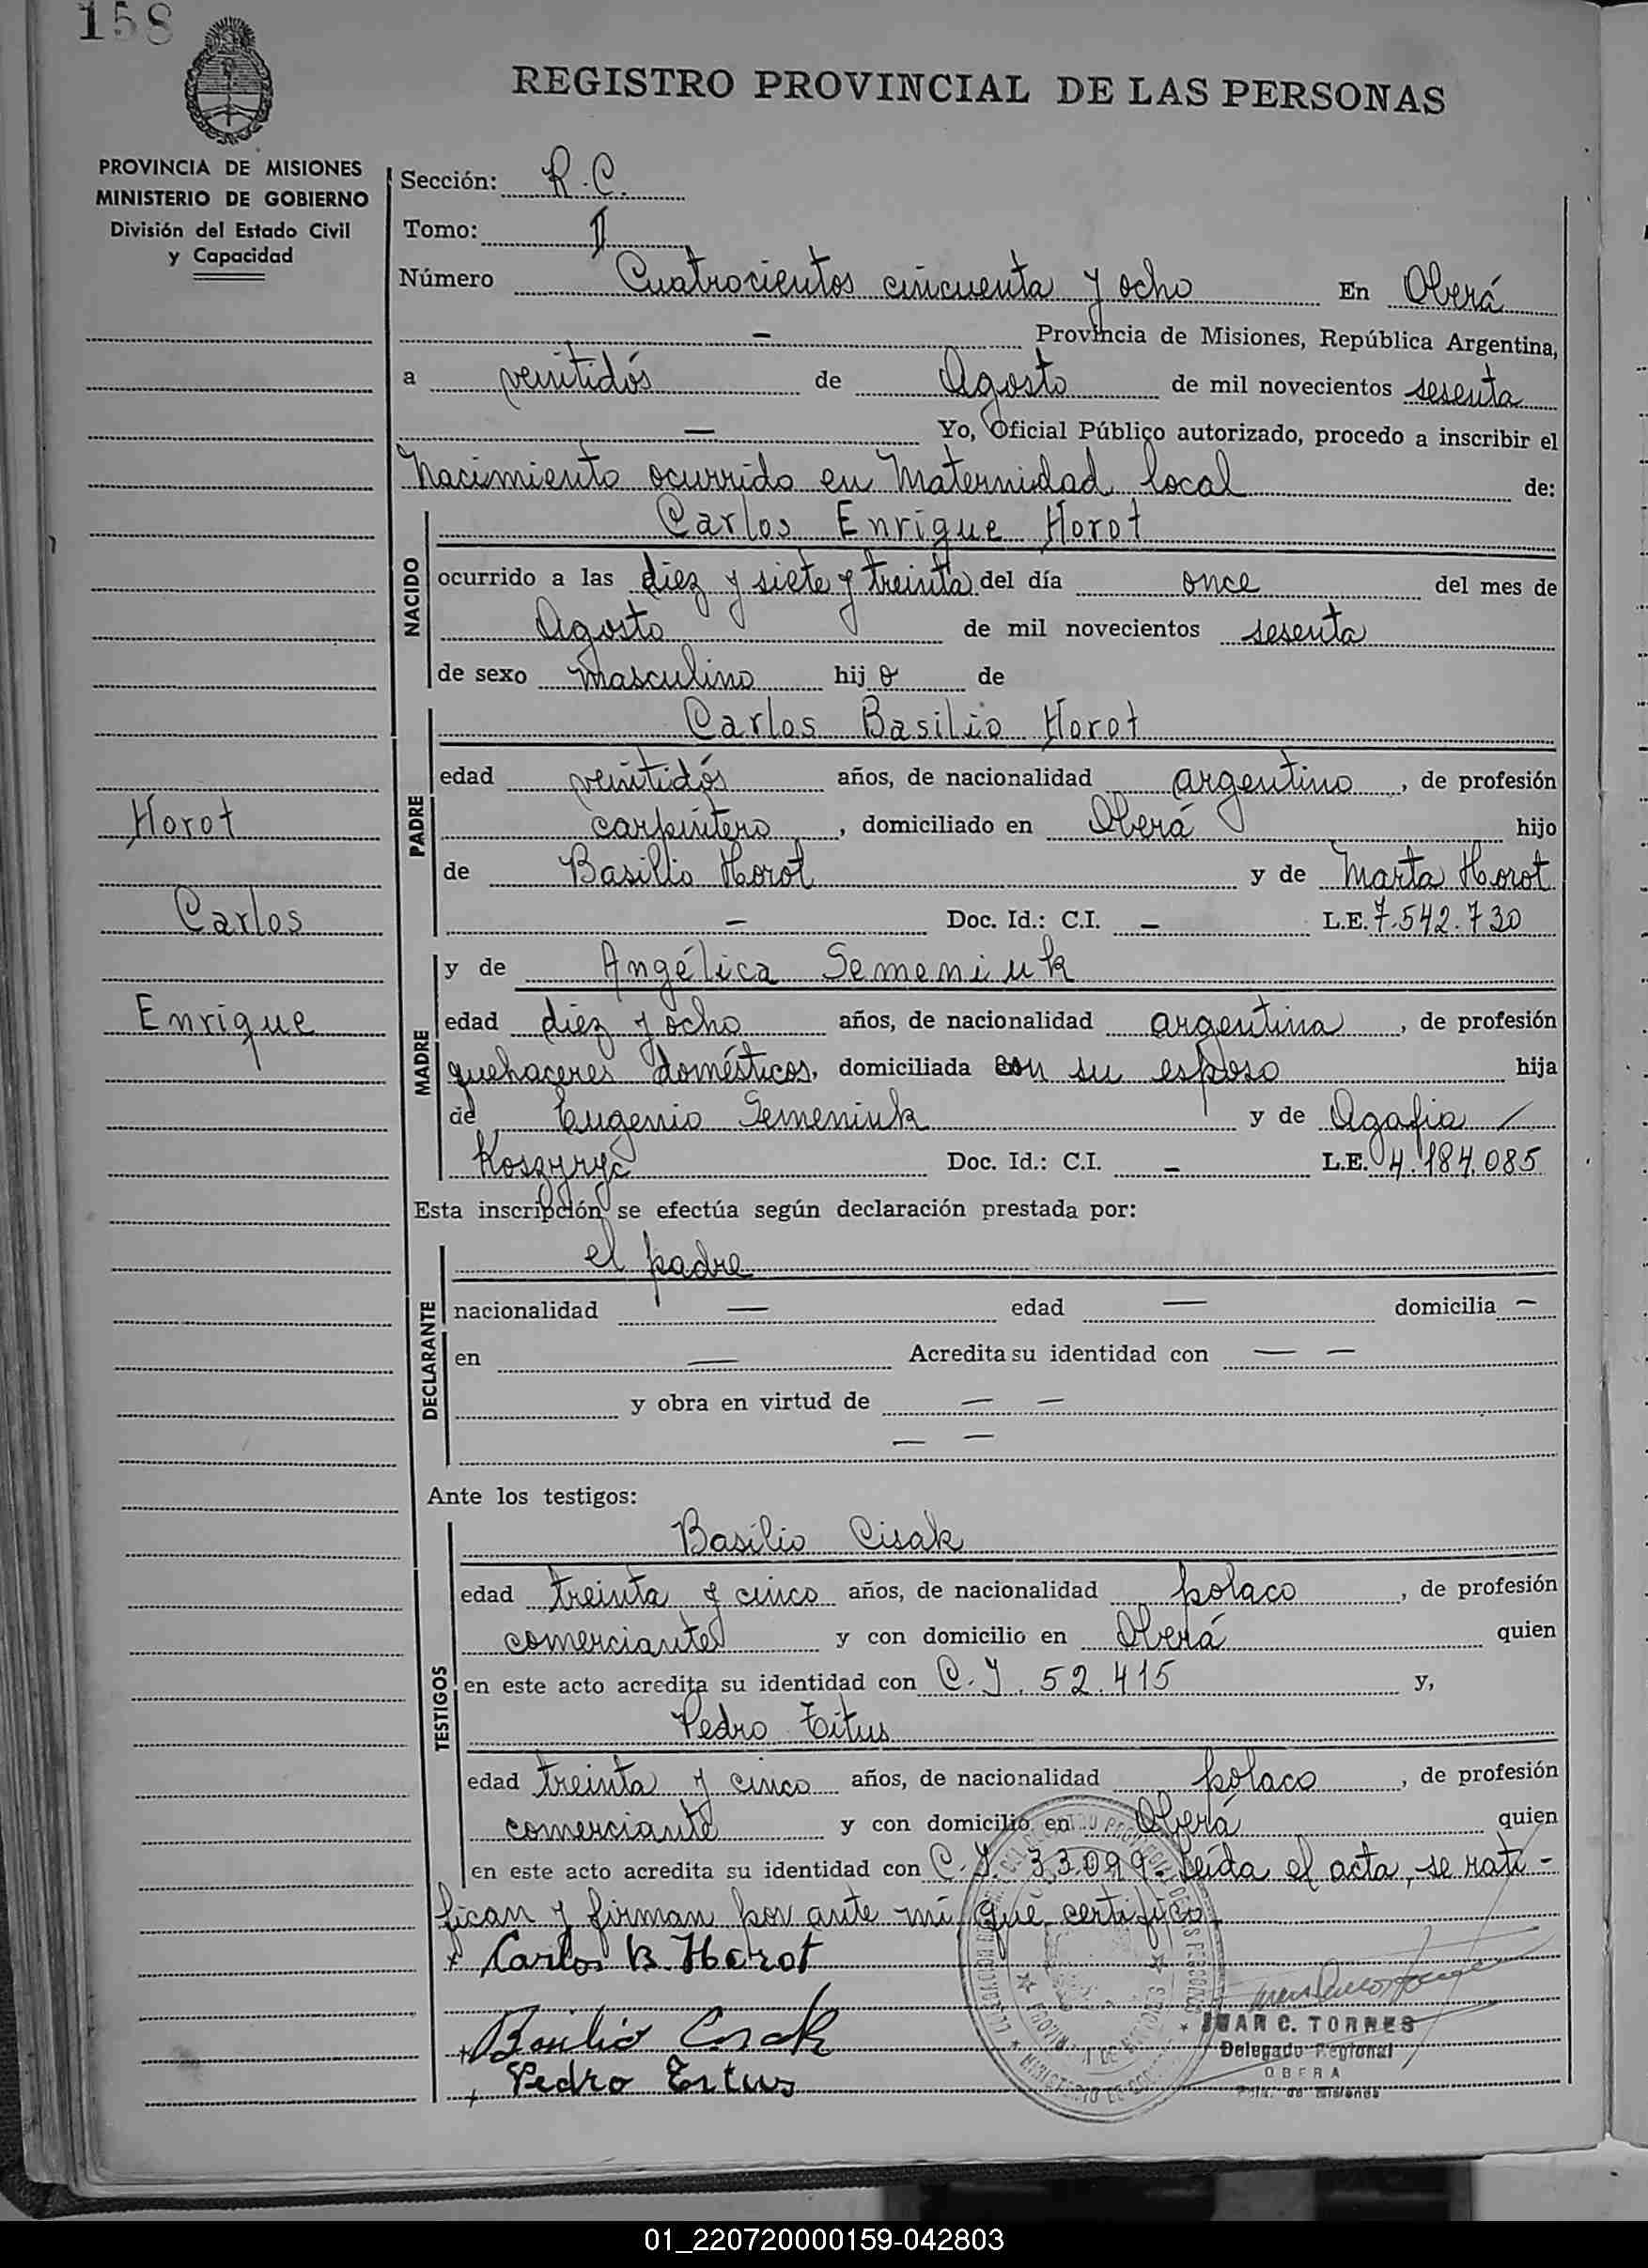 158
REGISTRO PROVINCIAL DE LAS PERSONAS
PROVINCIA DE MISIONES
MINISTERIO DE GOBIERNO
División del Estado Civil
y Capacidad
Sección: R.C.
Tomo: II
Número Cuatrocientos cincuenta y ocho En Oberá
— Provincia de Misiones, República Argentina,
a veintidós de Agosto de mil novecientos sesenta
— Yo, Oficial Público autorizado, procedo a inscribir el
Nacimiento ocurrido en Maternidad local de:
NACIDO
Carlos Enrique Horot
ocurrido a las diez y siete y treinta del día once del mes de
Agosto de mil novecientos sesenta
de sexo masculino hijo de
PADRE
Carlos Basilio Horot
edad veintidós años, de nacionalidad argentino, de profesión
carpintero, domiciliado en Oberá hijo
de Basilio Horot y de Marta Horot
— Doc. Id.: C.I. — L.E. 7.542.730
Horot
Carlos
Enrique
MADRE
y de Angélica Semeniuk
edad diez y ocho años, de nacionalidad argentina, de profesión
quehaceres domésticos, domiciliada con su esposo hija
de Eugenio Semeniuk y de Agafia
Koszyryc Doc. Id.: C.I. — L.E. 4.184.085
Esta inscripción se efectúa según declaración prestada por:
DECLARANTE
el padre
nacionalidad — edad — domicilia —
en — Acredita su identidad con — —
y obra en virtud de — —
— —
Ante los testigos:
TESTIGOS
Basilio Cisak
edad treinta y cinco años, de nacionalidad polaco, de profesión
comerciante y con domicilio en Oberá quien
en este acto acredita su identidad con C.I. 52.415 y,
Pedro Titus
edad treinta y cinco años, de nacionalidad polaco, de profesión
comerciante y con domicilio en Oberá quien
en este acto acredita su identidad con C.I. 33.099. Leída el acta, se rati-
fican y firman por ante mí que certifico.
x Carlos B. Horot
Basilio Cisak
Pedro Titus
JUAN C. TORRES
Delegado Regional
OBERA
Pcia. de Misiones
01_220720000159-042803